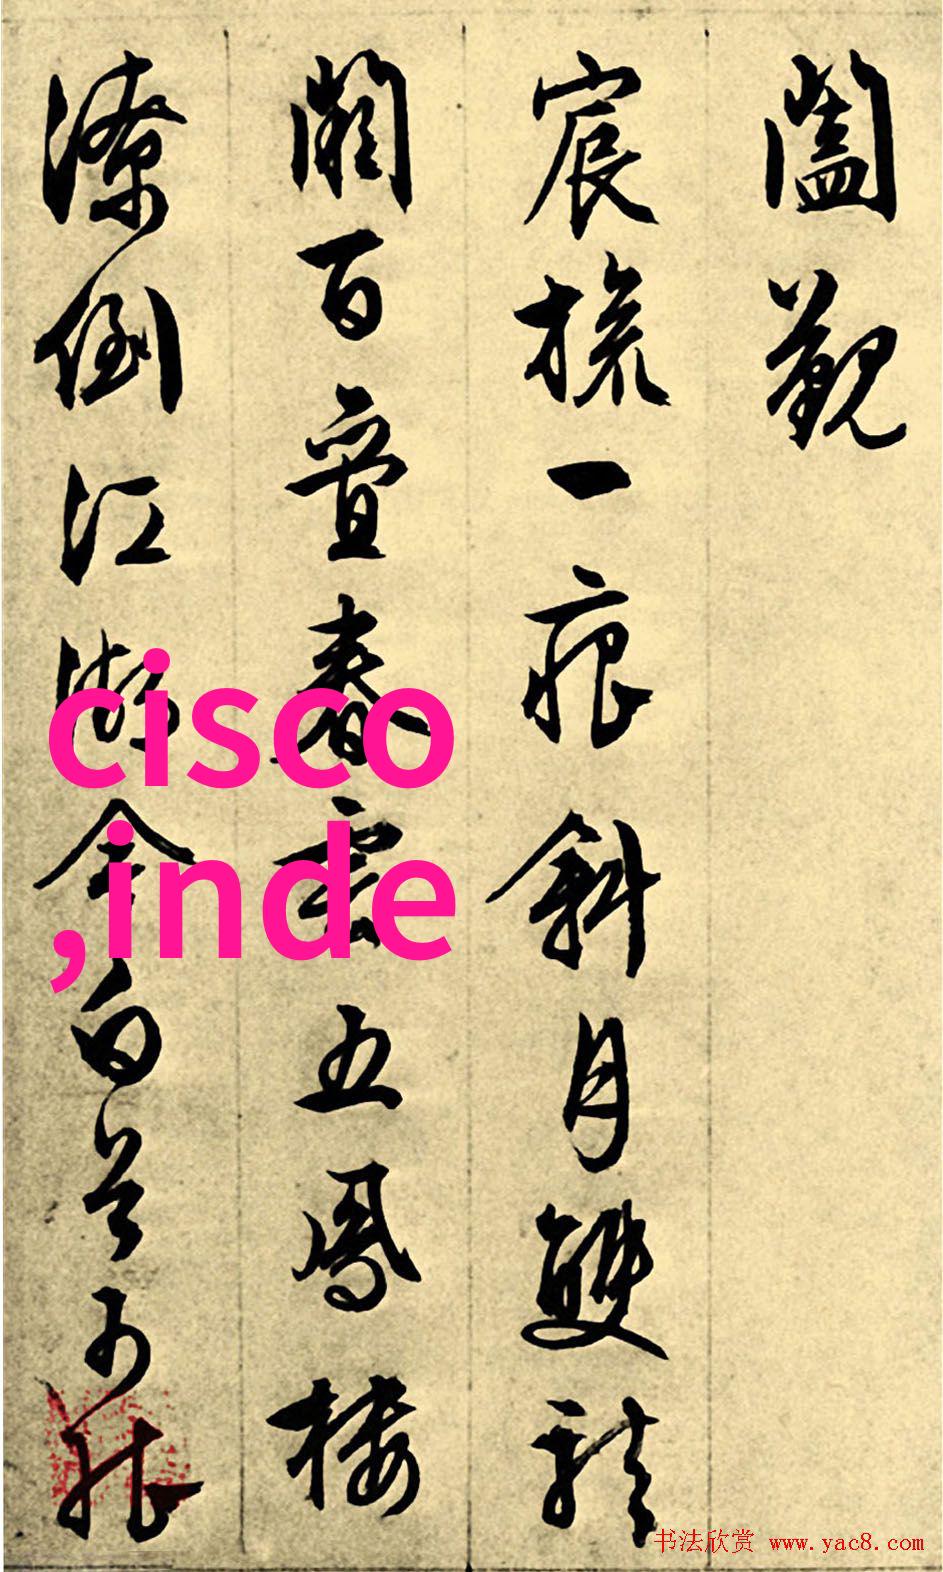 闔覲
宸旒一痕斜月雙龍
闕百疊春雲五鳳樓
潦倒江湖今白首可能
cisco
,inde
书法欣赏 www.yac8.com